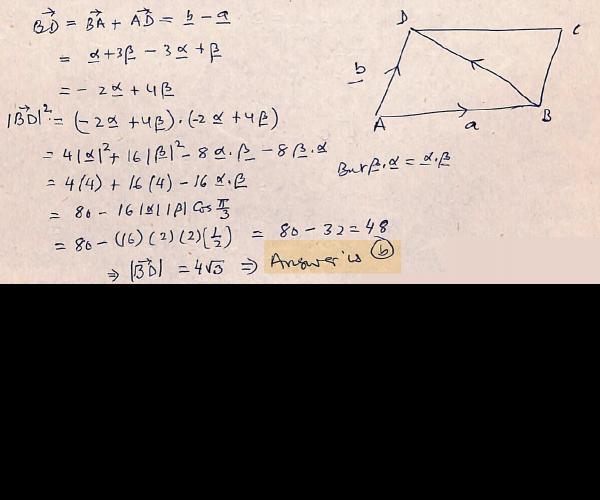 BD = BA + AD = b - a
= α + 3β - 3α + β
= - 2α + 4β
|BD|² = (-2α + 4β) · (-2α + 4β)
= 4|α|² + 16|β|² - 8α·β - 8β·α
But β·α = α·β
= 4(4) + 16(4) - 16 α·β
= 80 - 16|α||β| Cos π/3
= 80 - (16)(2)(2)(1/2) = 80 - 32 = 48
⇒ |BD| = 4√3 ⇒ Answer is (b)
D
C
b
A
a
B